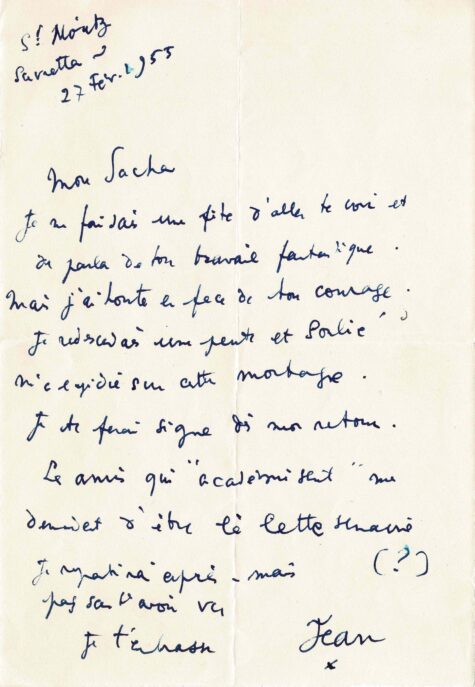 St Moritz
Suvretta
27 Fév. 1955
Mon Sacha
Je me faisais une fête d'aller te voir et
de parler de ton travail fantastique.
Mais j'ai honte en face de ton courage.
Je redescendais une pente et Soulié
m'a expédié sur cette montagne.
Je te ferai signe dès mon retour.
Les amis qui "académisent" me
demandent d'être là cette semaine
(?)
Je repartirai après - mais
pas sans t'avoir vu
Je t'embrasse
Jean